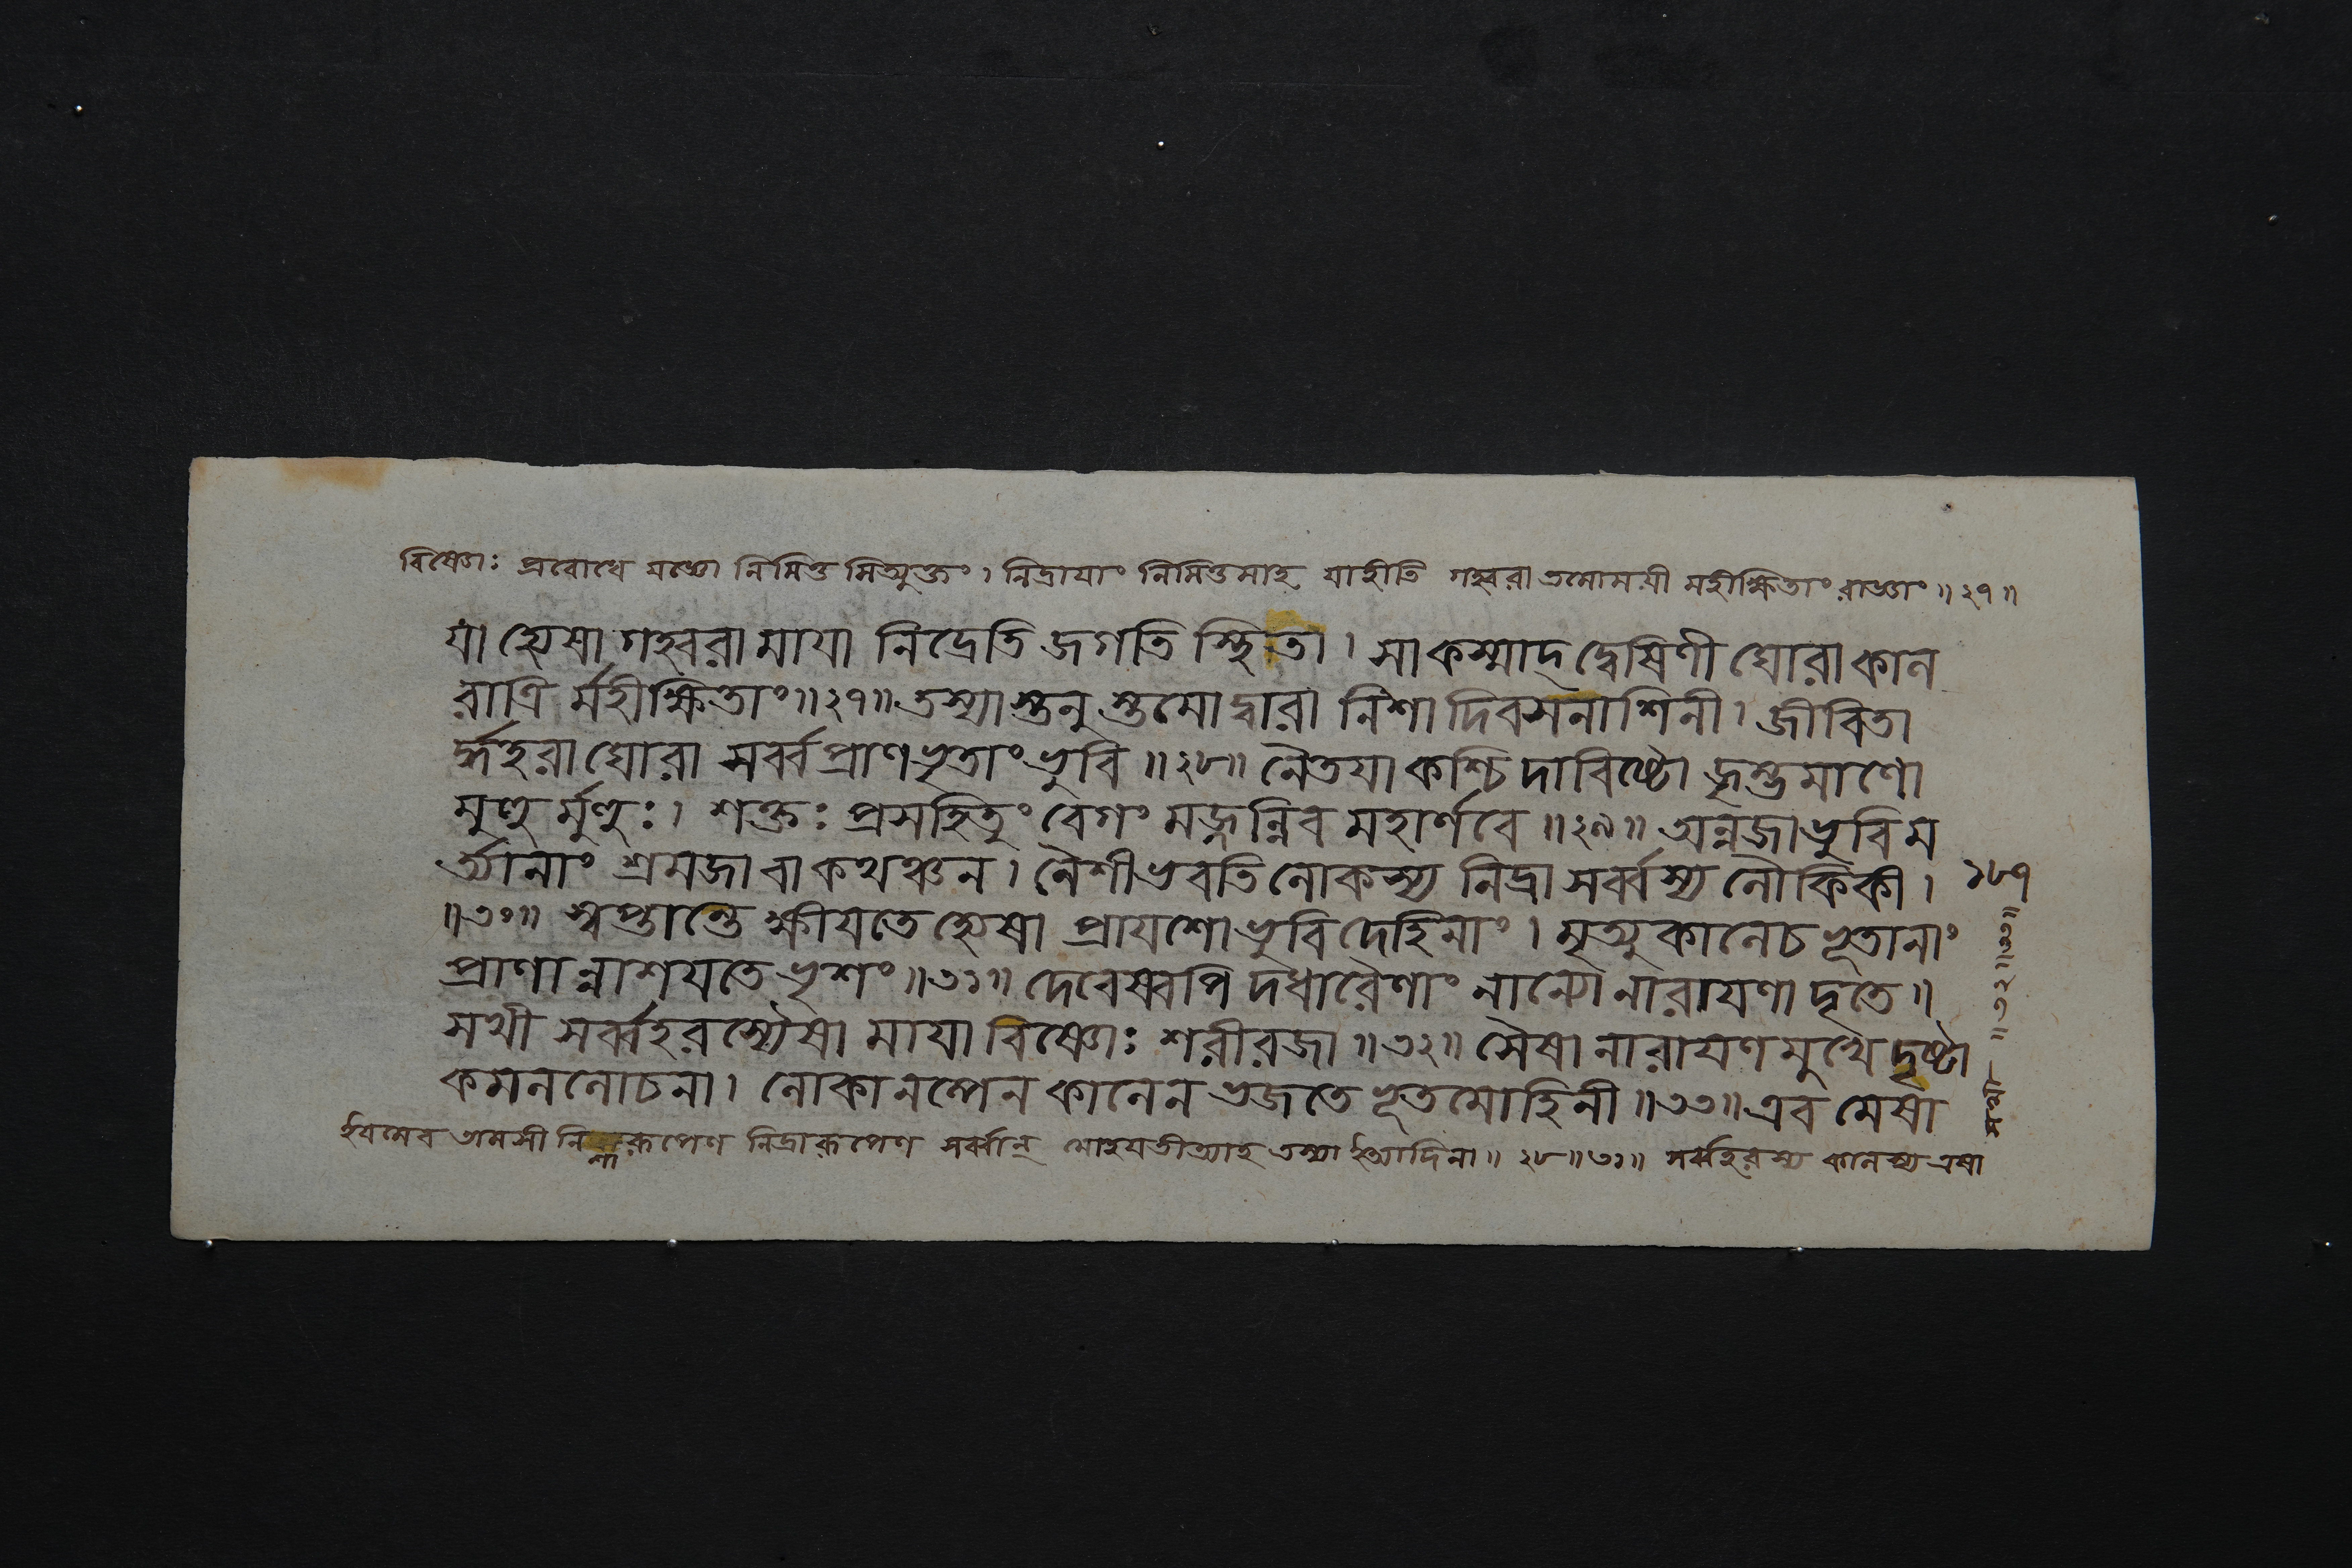 বিষ্ণোঃ প্রবোধে যজ্ঞো নিমিত্ত মিত্যুক্তং। নিদ্রাযাং নিমিত্তমাহ যাহীতি গহ্বরা তমোময়ী মহীক্ষিতাং রাজ্ঞাং॥২৭॥
যা হ্যেষা গহ্বরা মাযা নিদ্রেতি জগতি স্থিতা। সাকস্মাদ্ দ্বেষিণী ঘোরা কাল
রাত্রি র্মহীক্ষিতাং॥২৭॥ তস্যাস্তনু স্তমোদ্বারা নিশা দিবসনাশিনী। জীবিতা
র্দ্ধহরা ঘোরা সর্ব্ব প্রাণভৃতাং ভুবি॥২৮॥ নৈতযা কশ্চিদাবিষ্টো জৃম্ভমাণো
মুহু র্মুহুঃ। শক্তঃ প্রসহিতুং বেগং মজ্জন্নিব মহার্ণবে॥২৯॥ অন্নজা ভুবি ম
র্ত্যানাং শ্রমজা বা কথঞ্চন। নৈশী ভবতি লোকস্য নিদ্রা সর্ব্বস্য লৌকিকী। ১৮৭
॥৩০॥ স্বপ্তান্তে ক্ষীযতে হ্যেষা প্রাযশো ভুবি দেহিনাং। মৃত্যুকালেচ ভূতানাং
প্রাণান্নাশযতে ভৃশং॥৩১॥ দেবেষ্বপি দধারৈণাং নান্যো নারাযণাদৃতে॥
সখী সর্ব্বহরস্যৈষা মাযা বিষ্ণোঃ শরীরজা॥৩২॥ সৈষা নারাযণমুখে দৃষ্টা
কমললোচনা। লোকানল্পেন কালেন ভজতে ভূতমোহিনী॥৩৩॥ এব মেষা
ইযমেব তামসী নিশারূপেণ নিদ্রারূপেণ সর্ব্বান্ মোহযতীত্যাহ তস্যা ইত্যাদিনা॥২৮॥৩১॥ সর্ব্বহরস্য কালস্য এষা
সখী॥৩২॥৩৩॥